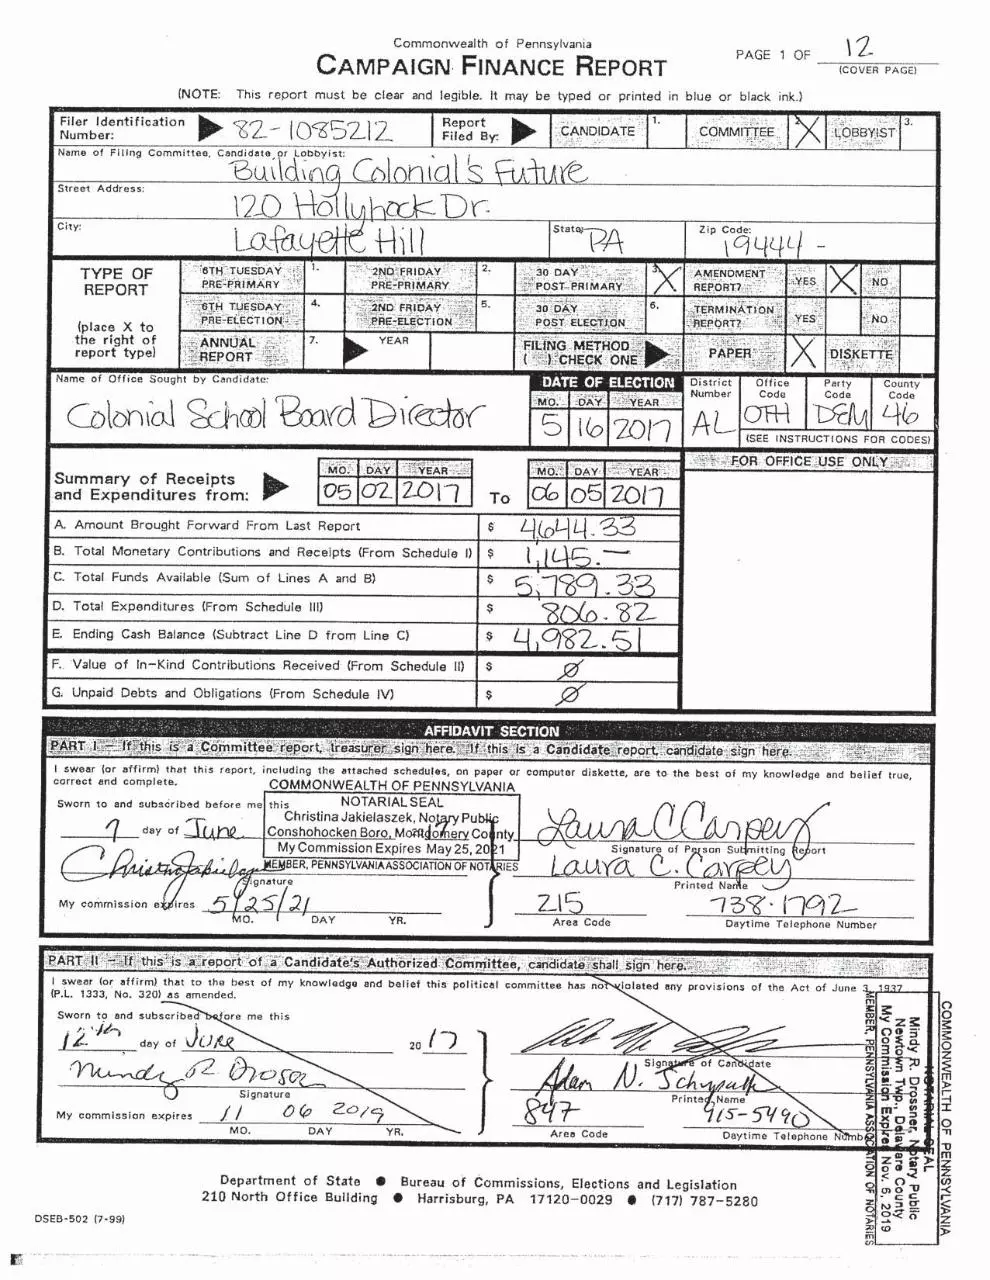 Commonwealth of Pennsylvania
CAMPAIGN FINANCE REPORT
PAGE 1 OF 12
(COVER PAGE)
(NOTE: This report must be clear and legible. It may be typed or printed in blue or black ink.)
Filer Identification Number: 82-1085212 Report Filed By: CANDIDATE 1. COMMITTEE 2. X LOBBYIST 3.
Name of Filing Committee, Candidate or Lobbyist:
Building Colonial's Future
Street Address:
120 Hollyhock Dr.
City: Lafayette Hill State: PA Zip Code: 19444 -
TYPE OF REPORT
(place X to the right of report type)
6TH TUESDAY PRE-PRIMARY 1. 2ND FRIDAY PRE-PRIMARY 2. 30 DAY POST-PRIMARY 3. X AMENDMENT REPORT? YES X NO
6TH TUESDAY PRE-ELECTION 4. 2ND FRIDAY PRE-ELECTION 5. 30 DAY POST ELECTION 6. TERMINATION REPORT? YES NO
ANNUAL REPORT 7. YEAR FILING METHOD ( ) CHECK ONE PAPER X DISKETTE
Name of Office Sought by Candidate:
Colonial School Board Director
DATE OF ELECTION
MO. DAY YEAR
5 16 2017
District Number AL
Office Code OTH
Party Code DEM
County Code 46
(SEE INSTRUCTIONS FOR CODES)
Summary of Receipts and Expenditures from:
MO. DAY YEAR
05 02 2017
To
MO. DAY YEAR
06 05 2017
FOR OFFICE USE ONLY
A. Amount Brought Forward From Last Report $ 4644.33
B. Total Monetary Contributions and Receipts (From Schedule I) $ 1,145.—
C. Total Funds Available (Sum of Lines A and B) $ 5,789.33
D. Total Expenditures (From Schedule III) $ 806.82
E. Ending Cash Balance (Subtract Line D from Line C) $ 4,982.51
F. Value of In-Kind Contributions Received (From Schedule II) $ Ø
G. Unpaid Debts and Obligations (From Schedule IV) $ Ø
AFFIDAVIT SECTION
PART I – If this is a Committee report, treasurer sign here. If this is a Candidate report, candidate sign here.
I swear (or affirm) that this report, including the attached schedules, on paper or computer diskette, are to the best of my knowledge and belief true,
correct and complete.
Sworn to and subscribed before me this
7 day of June
COMMONWEALTH OF PENNSYLVANIA
NOTARIAL SEAL
Christina Jakielaszek, Notary Public
Conshohocken Boro, Montgomery County
My Commission Expires May 25, 2021
MEMBER, PENNSYLVANIA ASSOCIATION OF NOTARIES
Signature
My commission expires 5/25/21
MO. DAY YR.
Laura C Carpey
Signature of Person Submitting Report
Laura C. Carpey
Printed Name
215 738-1792
Area Code Daytime Telephone Number
PART II – If this is a report of a Candidate's Authorized Committee, candidate shall sign here.
I swear (or affirm) that to the best of my knowledge and belief this political committee has not violated any provisions of the Act of June 3, 1937
(P.L. 1333, No. 320) as amended.
Sworn to and subscribed before me this
12th day of June 2017
Mindy R Drossner
Signature
My commission expires 11 06 2019
MO. DAY YR.
Signature of Candidate
Adam N.
Printed Name
847 915-5490
Area Code Daytime Telephone Number
COMMONWEALTH OF PENNSYLVANIA
NOTARIAL SEAL
Mindy R. Drossner, Notary Public
Newtown Twp., Delaware County
My Commission Expires Nov. 6, 2019
MEMBER, PENNSYLVANIA ASSOCIATION OF NOTARIES
Department of State ● Bureau of Commissions, Elections and Legislation
210 North Office Building ● Harrisburg, PA 17120-0029 ● (717) 787-5280
DSEB-502 (7-99)